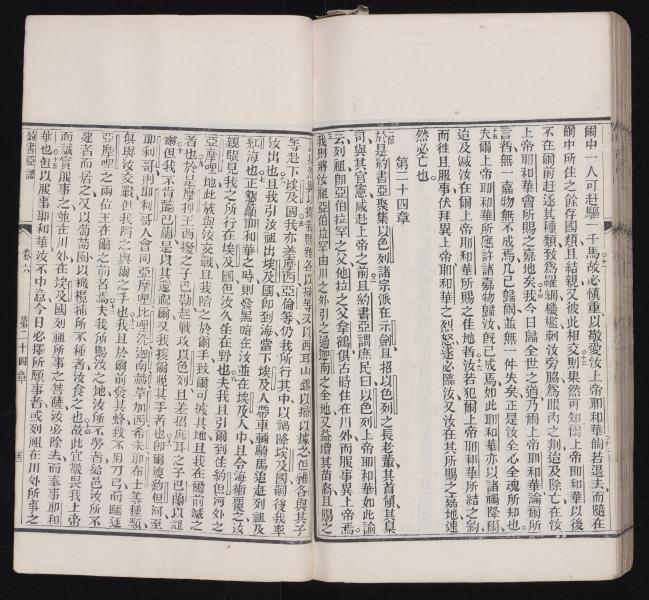 爾中一人可赶驅一千焉故必慎重以敬愛汝上帝耶和華倘若退去而隨在
爾中所住之餘存國類且結親又彼此相交則果然可知爾上帝耶和華以後
不在爾前赶逐其種類致為羅網機檻刺汝旁脇為眼內之荊迨及除亡在汝
上帝耶和華曾所賜之嘉地矣我今日歸全世之道乃爾上帝耶和華論爾所
言者無一嘉物無不成焉凡已歸爾並無一件失矣正是汝全心全魂所知也
夫爾上帝耶和華所應許諸嘉物歸汝既已成焉如此耶和華亦以諸禍降爾
迨及滅汝在爾上帝耶和華所賜之佳地者汝若犯爾上帝耶和華所結之約
而往且服事伏拜異上帝耶和華之烈怒遂必臨汝又汝在其所賜之嘉地速
然必亡也
第二十四章
於是約書亞聚集以色列諸宗派在示劍且招以色列之長老董其首領其臬
司與其官憲咸赴上帝之前且約書亞謂庶民曰以色列上帝耶和華如此諭
云列祖即亞伯拉罕之父他拉之父拿鶴俱古時住在川外而服事異上帝焉
我則將汝祖亞伯拉罕由川之外引之過迦南之全地又益增其苗裔且賜之
以西耳山為業以據之但雅各與其子
等赴下埃及國我亦差摩西亞倫等仍我所行其中以禍降埃及國嗣後我率
汝出也且我引汝祖出埃及國即到海當下埃及人帶車輛騎馬追赶列祖及
紅海也正懇籲耶和華之時則發黑暗在汝並在埃及人中且令海衝覆之汝
親眼見我之所行在埃及國但汝久住在野也夫我且引爾到住約但河外之
亞摩哩地此族與汝交戰且我陪之於爾手致爾可據其地且我在爾前滅之
者也於是摩押王西撥之子巴勒起戰攻以色列且差招庇耳之子巴蘭以詛
爾但我不肯聽巴蘭是以其還祝爾又我拯爾脫其手者也即爾過約但河至
耶利哥則耶利哥人會同亞摩哩比哩洗迦南赫章加西希未耶布士等種類
俱與汝交戰但我陪之與爾之手也我且於爾前發其蜂我不用刀弓而驅逐
亞摩哩之兩位王在爾之前者焉夫我所賜汝之地汝所不勞者給邑汝所不
建者而居之又以葡萄園以橄欖補所不種者汝食之也故此宜敬畏我上帝
而誠實服事之並在川外在埃及國列祖所事之菩薩汝必除去而奉事耶和
華也但以服事耶和華汝不中意今日必擇所願事者或列祖在川外所事之
約書亞譜 卷六 第二十四章